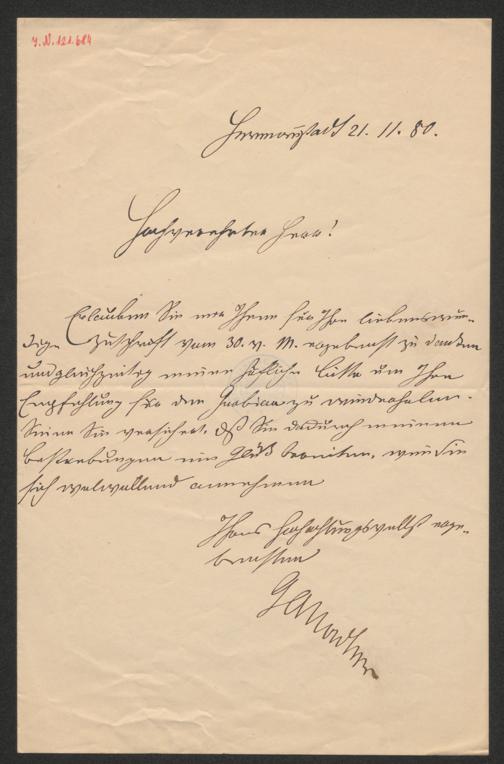 J.N. 121.684
Hermannstadt 21. 11. 80.
Hochverehrter Herr!
Erlauben Sie mir Ihnen für Ihre liebenswür-
dige Zuschrift vom 30. v. M. ergebenst zu danken
und gleichzeitig meine höfliche Bitte um Ihre
Empfehlung für den zu wiederholen.
Seien Sie versichert, dß Sie dadurch meinen
Bestrebungen ein Glück bereiten, wenn Sie
sich wolwollend annehmen
Ihres hochachtungsvollst erge-
bensten